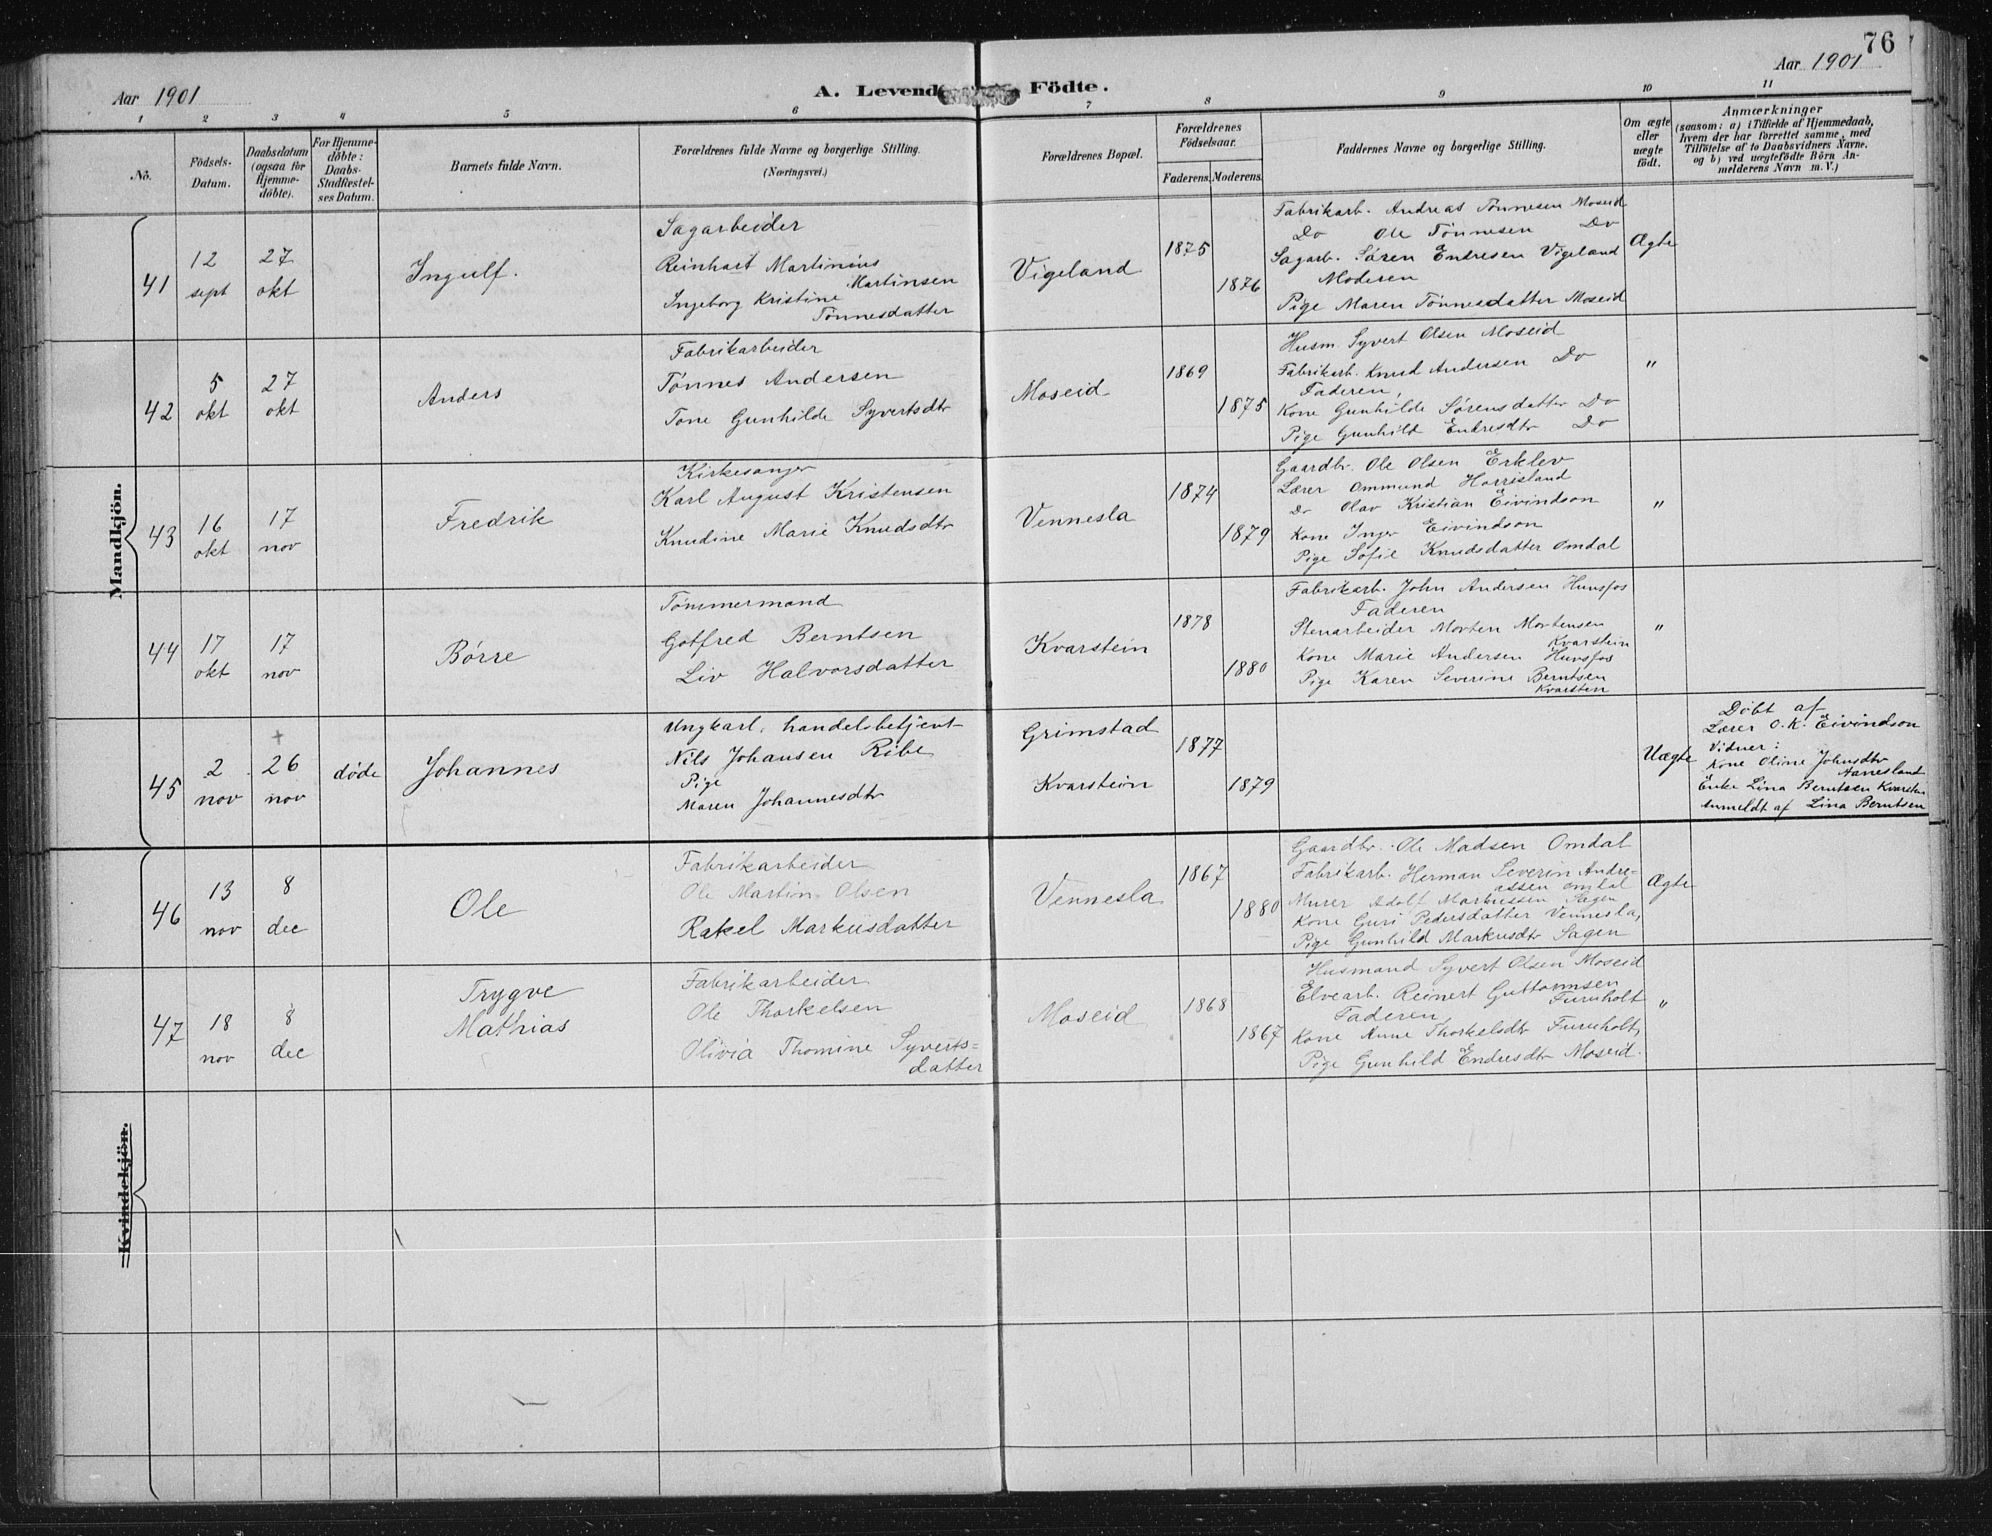 76
Aar 1901
A. Levende Födte.
Aar 1901
1 2 3 4 5 6 7 8 9 10 11
No.
Födsels-Datum.
Daabsdatum (ogsaa for Hjemme-döbte).
For Hjemme-döbte: Daabs-Stadfæstel-ses Datum.
Barnets fulde Navn.
Forældrenes fulde Navne og borgerlige Stilling.
(Næringsvei.)
Forældrenes Bopæl.
Forældrenes Födselsaar.
Faderens. Moderens.
Faddernes Navne og borgerlige Stilling.
Om ægte eller uægte født.
Anmærkninger
(saasom: a) i Tilfælde af Hjemmedaab,
hvem der har forrettet samme, med
Tilföielse af to Daabsvidners Navne.
og b) ved uægtefödte Börn An-
melderens Navn m. V.)
Mandkjön.
41
12 sept
27 okt
Ingulf.
Sagarbeider
Reinhart Martinius
Martinsen
Ingeborg Kristine
Tønnesdatter
Vigeland
1875
1876
Fabrikarb. Andreas Tønnesen Moseid
Do Ole Tønnesen Do
Sagarb. Søren Endresen Vigeland
Moderen
Pige Maren Tønnesdatter Moseid
Ægte
42
5 okt
27 okt
Anders
Fabrikarbeider
Tønnes Andersen
Tone Gunhilde Syvertsdtr
Moseid
1869
1875
Husm. Syvert Olsen Moseid
Fabrikarb. Knud Andersen Do
Faderen,
Kone Gunhilde Sørensdatter Do
Pige Gunhild Endresdtr Do
"
43
16 okt
17 nov
Fredrik
Kirkesanger
Karl August Kristensen
Knudine Marie Knudsdtr
Vennesla
1874
1879
Gaardbr. Ole Olsen Erklev
Lærer Ommund Horrisland
Do Olav Kristian Eivindson
Kone Inger Eivindson
Pige Sofie Knudsdatter Omdal
"
44
17 okt
17 nov
Børre
Tømmermand
Gotfred Berntsen
Liv Halvorsdatter
Kvarstein
1878
1880
Fabrikarb. John Andersen Hunsfos
Faderen
Stenarbeider Morten Mortensen
Kvarstein
Kone Marie Andersen Hunsfos
Pige Karen Severine Berntsen
Kvarsten
"
45
2 nov
+
26 nov
døde
Johannes
Ungkarl, handelsbetjent
Nils Johansen Ribe
Pige
Maren Johannesdtr
Grimstad
Kvarstein
1877
1879
Uægte
Døbt af
Lærer O. K. Eivindson
Vidner:
Kone Oline Johnsdtr
Aanesland
Enke Lina Berntsen Kvarsten
Anmeldt af Lina Berntsen
46
13 nov
8 dec
Ole
Fabrikarbeider
Ole Martin Olsen
Rakel Markusdatter
Vennesla
1867
1880
Gaardbr. Ole Madsen Omdal
Fabrikarb. Herman Severin Andre-
assen Omdal
Murer Adolf Markussen Sagen
Kone Guri Pedersdatter Vennesla,
Pige Gunhild Markusdtr Sagen
Ægte
47
18 nov
8 dec
Trygve
Mathias
Fabrikarbeider
Ole Thorkelsen
Olivia Thomine Syverts=
datter
Moseid
1868
1867
Husmand Syvert Olsen Moseid
Elvearb. Reinert Guttormsen
Furuholt
Faderen,
Kone Anne Thorkelsdtr Furuholt,
Pige Gunhild Endresdtr Moseid.
"
Kvindekjön.